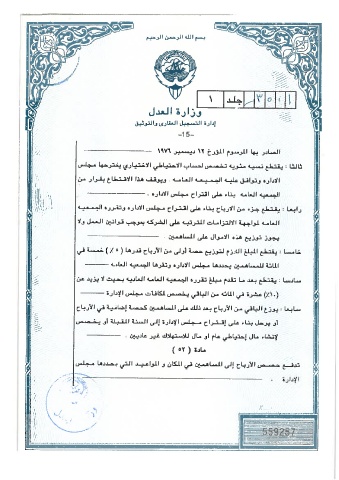 بسم الله الرحمن الرحيم
جلد ١
وزارة العدل
إدارة التسجيل العقارى والتوثيق
-15-
الصادر بها المرسوم المؤرخ ١٢ ديسمبر ١٩٧٦
ثالثا : يقتطع نسبه مئويه تخصص لحساب الاحتياطي الاختياري يقترحها مجلس
الاداره وتوافق عليه الجمعيه العامه ويوقف هذا الاقتطاع بقرار من
الجمعيه العامه بناء على اقتراح مجلس الاداره .
رابعا : يقتطع جزء من الارباح بناء على اقتراح مجلس الاداره وتقرره الجمعيه
العامه لمواجهة الالتزامات المترتبه على الشركه بموجب قوانين العمل ولا
يجوز توزيع هذه الاموال على المساهمين
خامسا : يقتطع المبلغ اللازم لتوزيع حصة أولى من الأرباح قدرها (٥٪) خمسة في
المائة للمساهمين يحددها مجلس الاداره وتقرها الجمعيه العامه
سادسا : يقتطع بعد ما تقدم مبلغ تقرره الجمعيه العامه العاديه بحيث لا يزيد عن
(١٠٪) عشرة في المائه من الباقي يخصص لمكافات مجلس الإدارة
سابعا : يوزع الباقي من الأرباح بعد ذلك على المساهمين كحصة إضافية في الأرباح
أو يرحل بناء على إقتراح مجلس الإدارة إلى السنة المقبلة أو يخصص
لإنشاء مال إحتياطي عام أو مال للاستهلاك غير عاديين .
مادة (٥٢)
تدفع حصص الأرباح إلى المساهمين في المكان و المواعيد التي يحددها مجلس
الإدارة .
559257